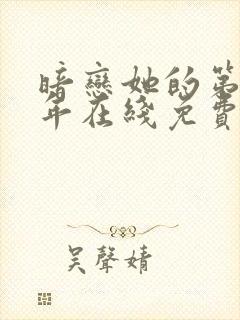 暗戀她的第
年在綫免費
吴聲婧